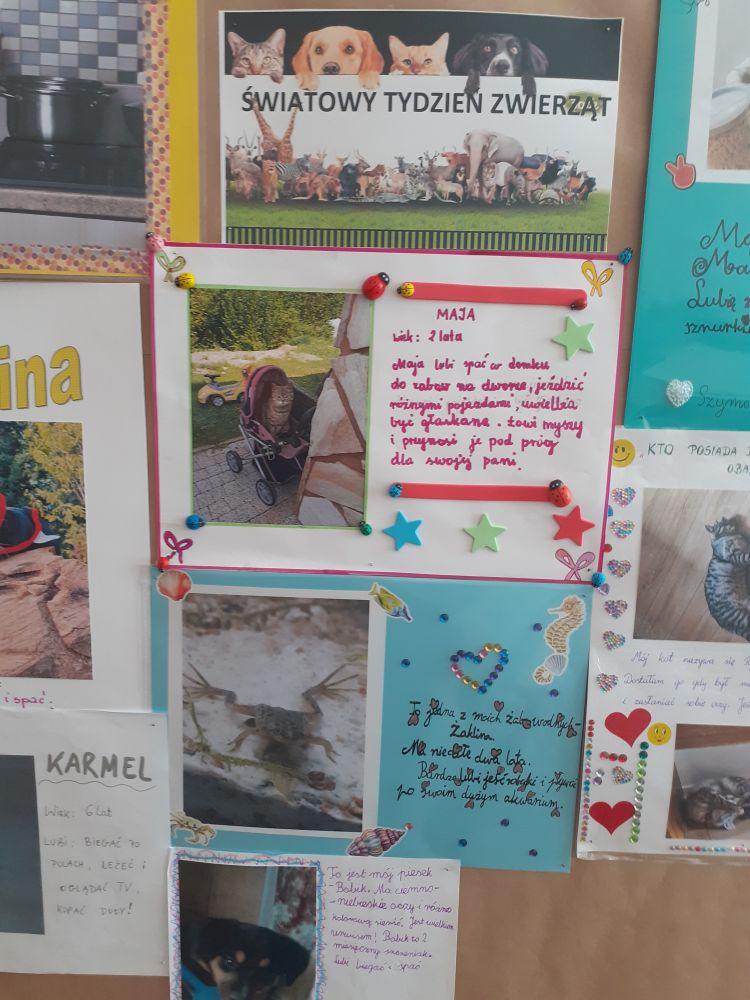 ŚWIATOWY TYDZIEŃ ZWIERZĄT
MAJA
wiek: 2 lata
Maja lubi spać w domku
do zabaw na dworze, jeździć
różnymi pojazdami, uwielbia
być głaskana. Łowi myszy
i przynosi je pod próg
dla swojej pani.
ina
i spać.
KARMEL
WIEK: 6 lat
LUBI: BIEGAĆ PO
POLACH, LEŻEĆ I
OGLĄDAĆ TV,
KOPAĆ DOŁY!
To jedna z moich żab wodnych-
Żaklina.
Ma niecałe dwa lata.
Bardzo lubi jeść robaki i pływać
po swoim dużym akwarium.
To jest mój piesek
-Bobik. Ma ciemno-
-niebieskie oczy i różno
kolorową sierść. Jest wielkim
urwisem! Bobik to 2
miesięczny szczeniak.
Lubi biegać i spać
Lubię
sznurki
Szymo
"KTO POSIADA
Mój kot nazywa się
Dostałam go gdy był
i zasłaniać sobie oczy.